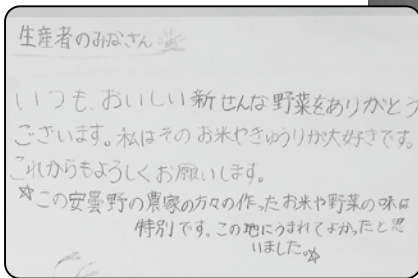 生産者のみなさん
いつも、おいしい新せんな野菜をありがとう
ございます。私はそのお米やきゅうりが大好きです。
これからもよろしくお願いします。
☆この安曇野の農家の方々の作ったお米や野菜の味は
特別です。この地にうまれてよかったと思
いました。☆